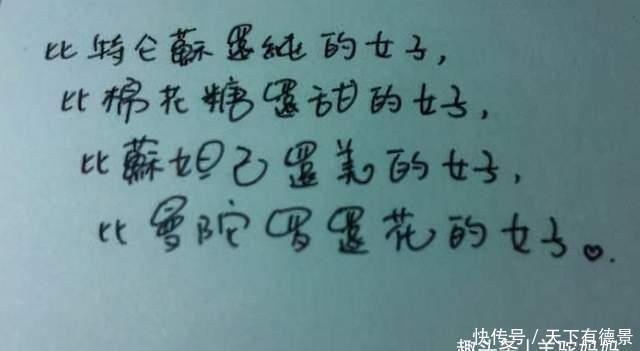 比特仑蘇還純的女子,
比棉花糖還甜的女子,
比蘇妲己還美的女子,
比曼陀罗還花的女子♥.
快传号 / 天下有德景
趣头条 | 羊驼妈妈